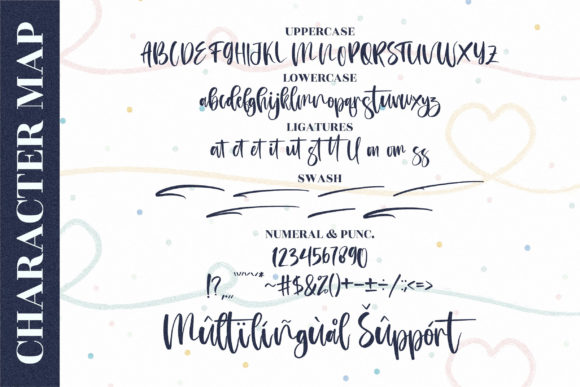 CHARACTER MAP
UPPERCASE
ABCDEFGHIJKL MNOPQRSTUVWXYZ
LOWERCASE
abcdefghijklmnopqrstuvwxyz
LIGATURES
at ct et it ut st tt ll on om ss
SWASH
NUMERAL & PUNC.
1234567890
~#$&%()+-±÷/:;<=>
Múltïlíñgùål Šûppórt